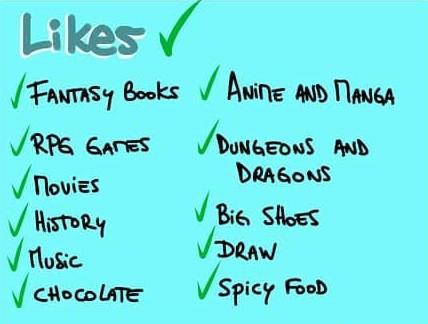 Likes
Fantasy Books
RPG Games
Movies
History
Music
Chocolate
Anime and Manga
Dungeons and
Dragons
Big Shoes
Draw
Spicy Food